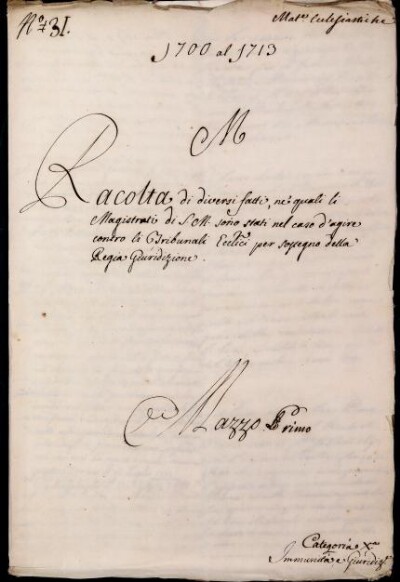 N.º 31.
Mat.e Eclesiastiche
1700 al 1713
M
Racolta di diversi fatti, ne' quali li
Magistrati di S. M. sono stati nel caso d'agire
contro li Tribunali Ecclici per sostegno della
Regia Giuridizione.
Mazzo Primo
Categoria X.a
Immunità e Giuridiz.e